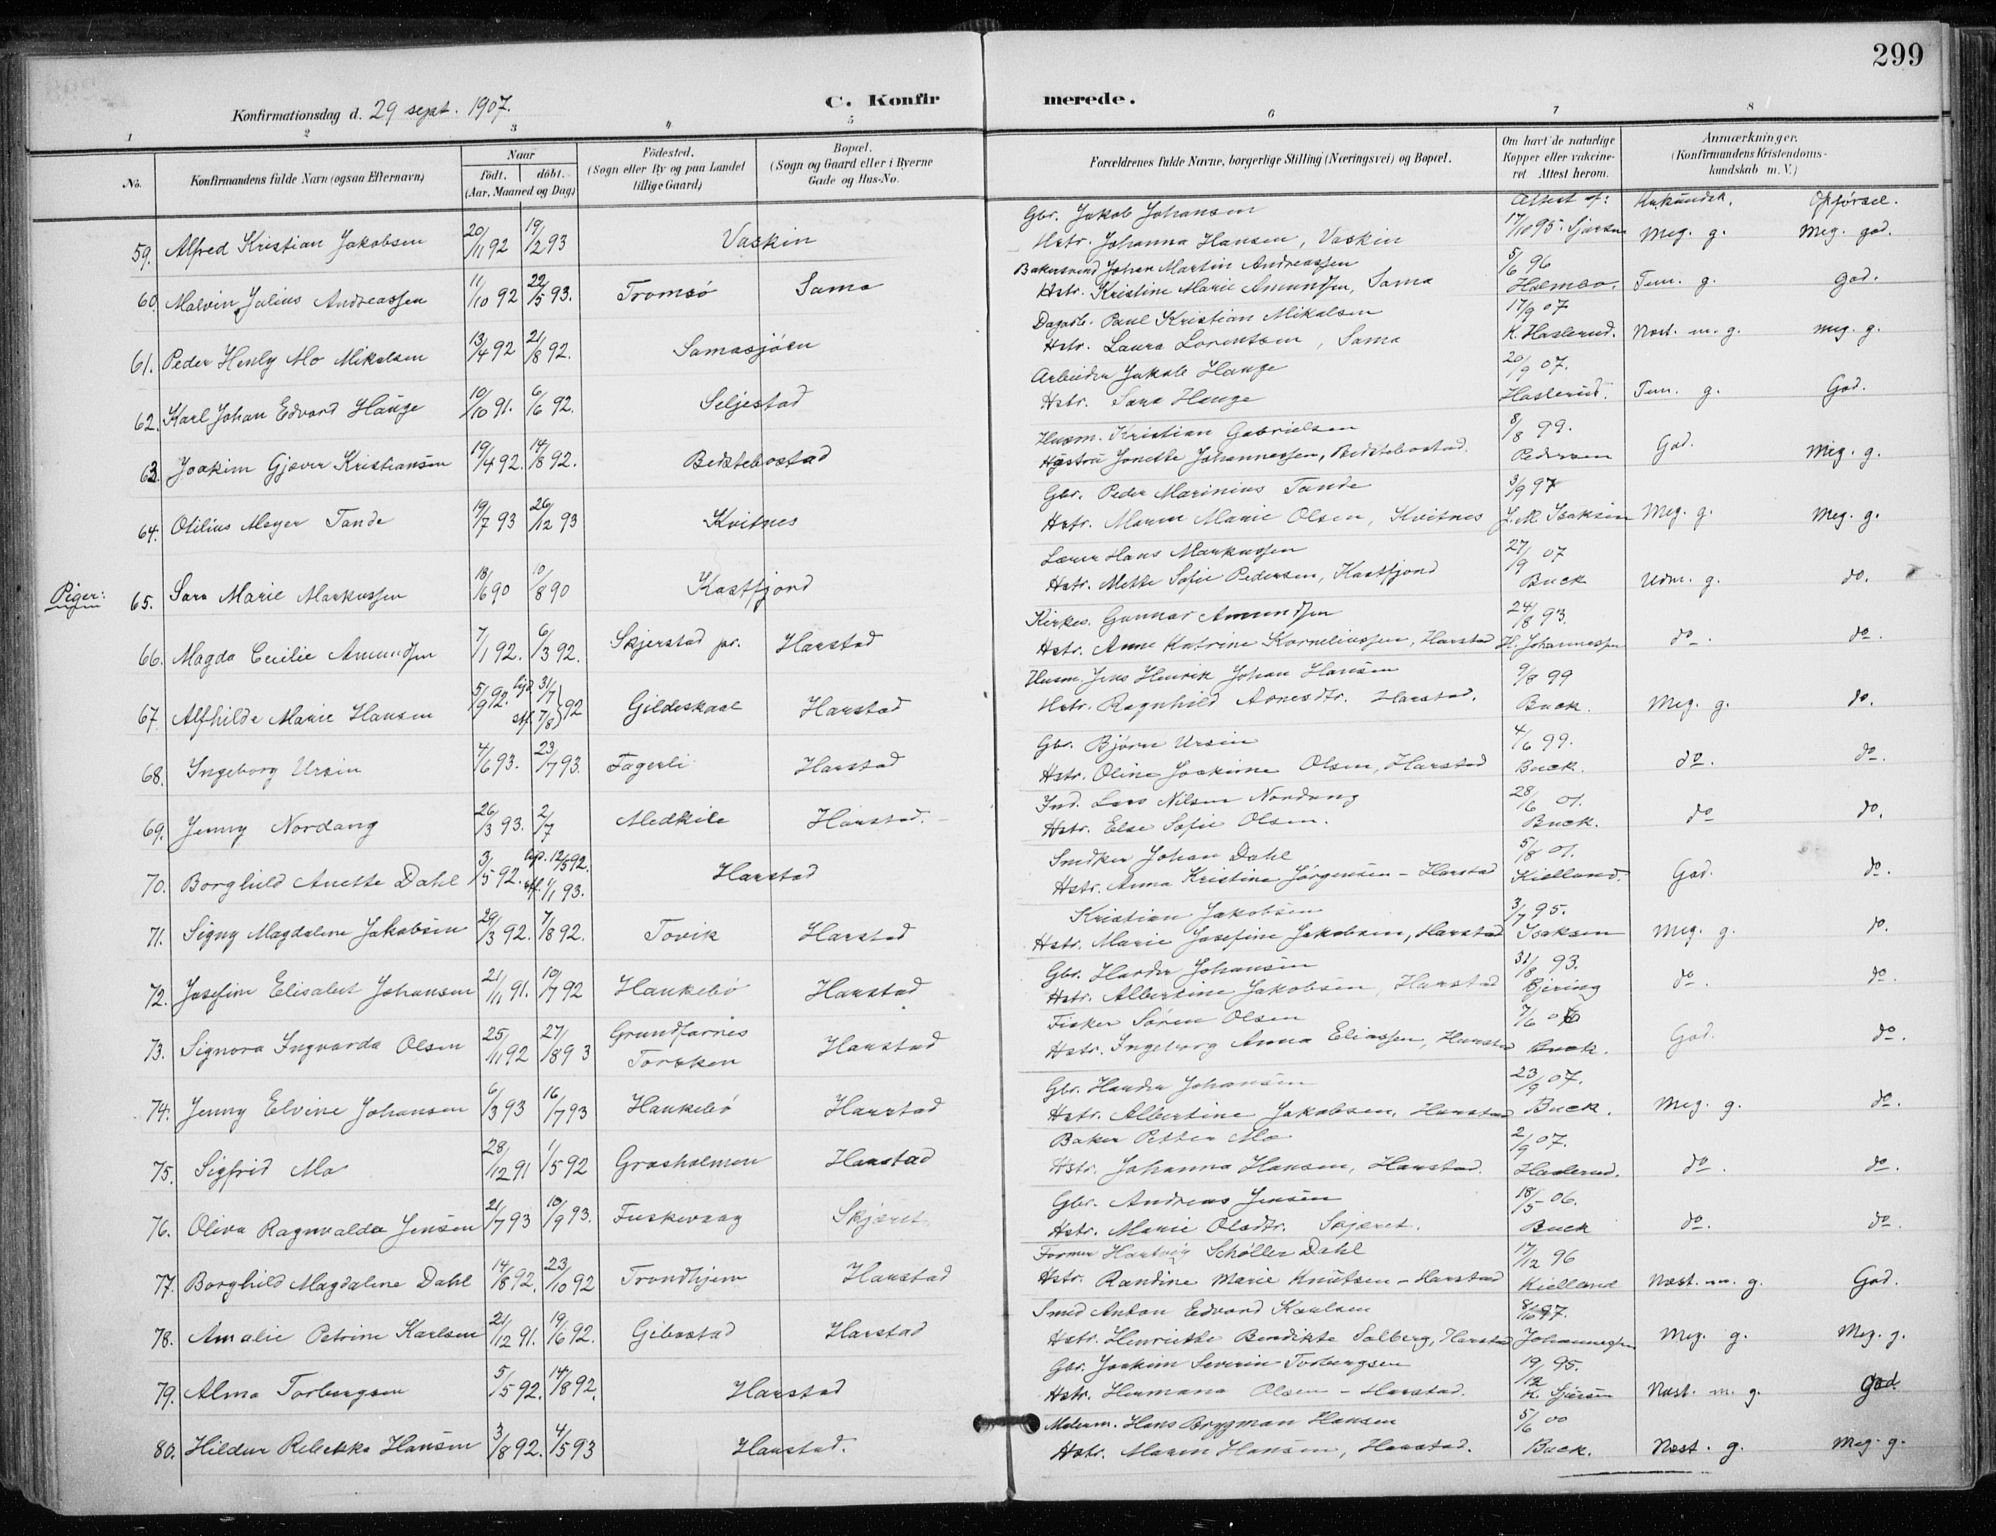 299
Konfirmationsdag d. 29 sept. 1907.
C. Konfir merede.
1 2 3 4 5 6 7 8
No. Konfirmandens fulde Navn (ogsaa Efternavn) Naar födt. döbt. (Aar, Maaned og Dag) Födested. (Sogn eller By og paa Landet tillige Gaard) Bopæl. (Sogn og Gaard eller i Byerne Gade og Hus-No. Forældrenes fulde Navne, borgerlige Stilling (Næringsvei) og Bopæl. Om havt de naturlige Kopper eller vakcineret Attest herom. Anmærkninger. (Konfirmandens Kristendomskundskab m. V.)
Attest af: Opførsel.
Gbr. Jakob Johansen
59. Alfred Kristian Jakobsen 20/11 92 19/2 93 Vaskin Hstr. Johanna Hansen, Vaskin 17/10 95. Meg. g. Meg. god.
Johan Martin Andreassen 5/6 96
60 Malvin Julius Andreassen 11/10 92 22/5 93. Tromsö Sama Hstr. Kristine Marie Amundsen, Sama Holmbo. Tem. g. God.
Dagarb. Paul Kristian Mikalsen 17/9 07
61. Peder Henly Mo Mikalsen 13/4 92 21/8 92. Samasjøen Hstr. Laura Lorentsen, Sama K. Haslerud. Nost. m. g. Meg. g.
Arbeider Jakob Hauge 20/9 07.
62. Karl Johan Edvard Hauge 10/10 91. 6/6 92. Seljestad Hstr. Sara Hauge Haslerud. Tem. g. God.
Husm. Kristian Gabrielsen 8/8 99.
63. Joakim Gjæver Kristiansen 19/4 92. 14/8 92. Bedstebostad Hustru Jonette Johannessen, Bedstebostad. Pedersen God. Meg. g.
Gbr. Peder Marinius Tande 3/9 97
64. Otilius Meyer Tande 19/7 93 26/12 93 Kvitnes Hstr. Maren Marie Olsen, Kvitnes J. M. Isaksen Meg. g. Meg. g.
Lærer Hans Markussen 27/9 07
Piger: 65. Sara Marie Markussen 18/6 90 10/8 90 Kastfjord Hstr. Mette Sofie Pedersen, Kastfjord Buck Udm. g. do.
Kirkes. Gunnar Amundsen 24/8 93.
66. Magda Cecilie Amundsen 7/1 92. 6/3 92. Skjerstad pr. Harstad Hstr. Anne Katrine Korneliussen, Harstad H. Johannessen do. do.
Husm. Jens Henrik Johan Hansen 9/8 99
67. Alfhilde Marie Hansen 5/9 92. hjd 31/7 stf. 7/8 } 92 Gildeskaal Harstad Hstr. Ragnhild Arnesdtr. Harstad. Buck. Meg. g. do.
Gbr. Bjørn Ursin 4/6 99.
68. Ingeborg Ursin 4/6 93. 23/7 93. Fagerli Harstad Hstr. Oline Joakime Olsen, Harstad Buck. do. do.
Ind. Lars Nilsen Nordang 28/6 01.
69. Jenny Nordang 26/3 93. 2/7 Medkile Harstad. Hstr. Else Sofie Olsen. Buck. do do.
Snedker Johan Dahl 5/8 01.
70. Borghild Anette Dahl 3/5 92. hjd. 12/5 92. stf. 1/1 93. Harstad Hstr. Anna Kristine Jørgensen - Harstad Kielland. God. do.
Kristian Jakobsen 3/7 95.
71. Signy Magdalene Jakobsen 29/3 92. 7/8 92. Tovik Harstad Hstr. Marie Josefine Jakobsen, Harstad Isaksen Meg. g. do.
Gbr. Hardar Johansen 31/8 93.
72. Josefine Elisabet Johansen 21/11 91. 10/7 92 Haukebø Harstad Hstr. Albertine Jakobsen, Harstad Bjering do. do.
Fisker Søren Olsen 7/6
73. Signora Ingvarda Olsen 25/11 92 27/8 93 Grundfarnes Torsken Harstad Hstr. Ingeborg Anna Eliassen, Harstad Buck. God. do.
Gbr. Hardar Johansen 23/9 07.
74. Jenny Elvine Johansen 6/3 93 16/7 93 Haukebø Harstad Hstr. Albertine Jakobsen, Harstad Buck. Meg. g. do.
Baker Petter Mo 2/9 07.
75. Sigfrid Mo 28/12 91 1/5 92 Grasholmen Harstad Hstr. Johanna Hansen, Harstad. Haslerud. do. do.
Gbr. Andreas Jensen 18/5 06.
76. Oliva Ragnvalda Jensen 21/7 93 10/9 93. Fuskevaag Skjæret. Hstr. Marie Olsdtr. Skjæret. Buck do. do.
Former Hartvig Schøller Dahl 17/12 96
77. Borghild Magdalene Dahl 14/8 92. 23/10 92 Trondhjem Harstad Hstr. Randine Marie Knutsen - Harstad Kielland Nost. m. g. God.
Smed Anton Edvard Karlsen 97.
78. Amalie Petrine Karlsen 21/12 91. 19/6 92. Gibostad Harstad Hstr. Henrikke Bendikte Solberg, Harstad Johannessen Meg. g. Meg. g.
Gbr. Joakim Severin Torbergsen 19/12 95.
79. Alma Torbergsen 5/5 92. 14/8 92. Harstad Hstr. Hermana Olsen - Harstad. Nost. m. g. God
Malerm. Hans Bryggman Hansen 5/6 00
80. Hildur Rebekka Hansen 3/8 92. 4/5 93 Harstad. Hstr. Maren Hansen, Harstad. Buck. Nost. g. Meg. g.